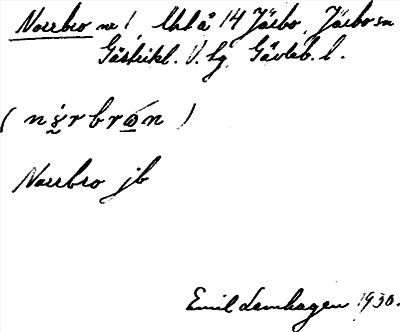 Norrbro nr 1 Utb å 14 Järbo, Järbo sn
Gästrikl. V. tg, Gävleb. l.
(
Norrbro jb
Emil Lamhagen 1930.